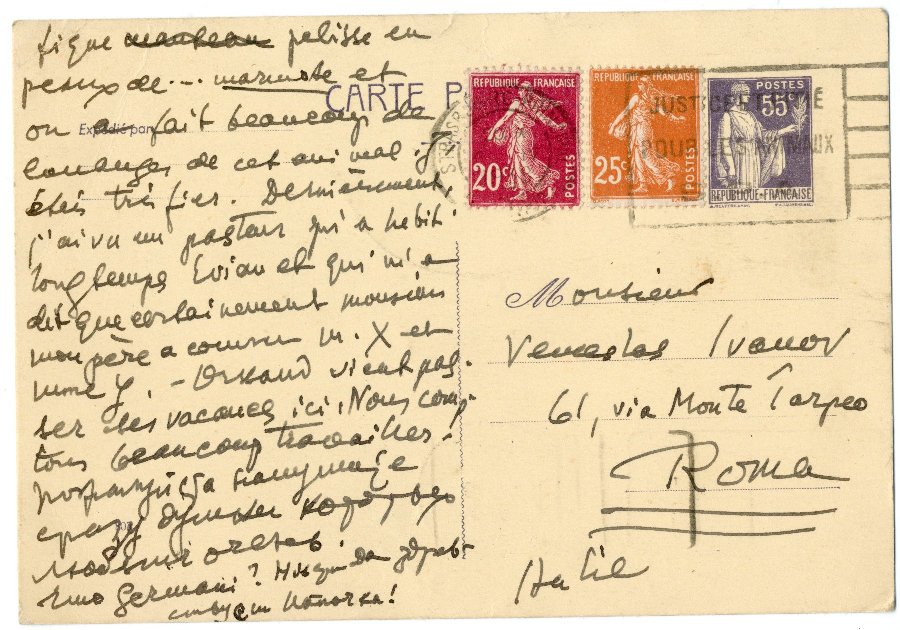 fique manteau pelisse en
peaux de... marmote et
CARTE P
Expédié par
on a fait beaucoup de
louanges de cet animal. J'
étais très fier. Dernièrement,
j'ai vu un pasteur qui a habité
longtemps Evian et qui m'a
dit que certainement monsieur
mon père a connu M. X et
mme Y. - Arnaud vient pas-
ser les vacances ici. Nous comp-
tons beaucoup travailler.
сразу думаем
Germani?
REPUBLIQUE FRANÇAISE
20c
POSTES
REPUBLIQUE FRANÇAISE
25c
POSTES
POSTES
55c
REPUBLIQUE FRANÇAISE
JUSTICE
POUR LES ANIMAUX
Monsieur
Venceslas Ivanov
61, via Monte Tarpeo
Roma
Italie